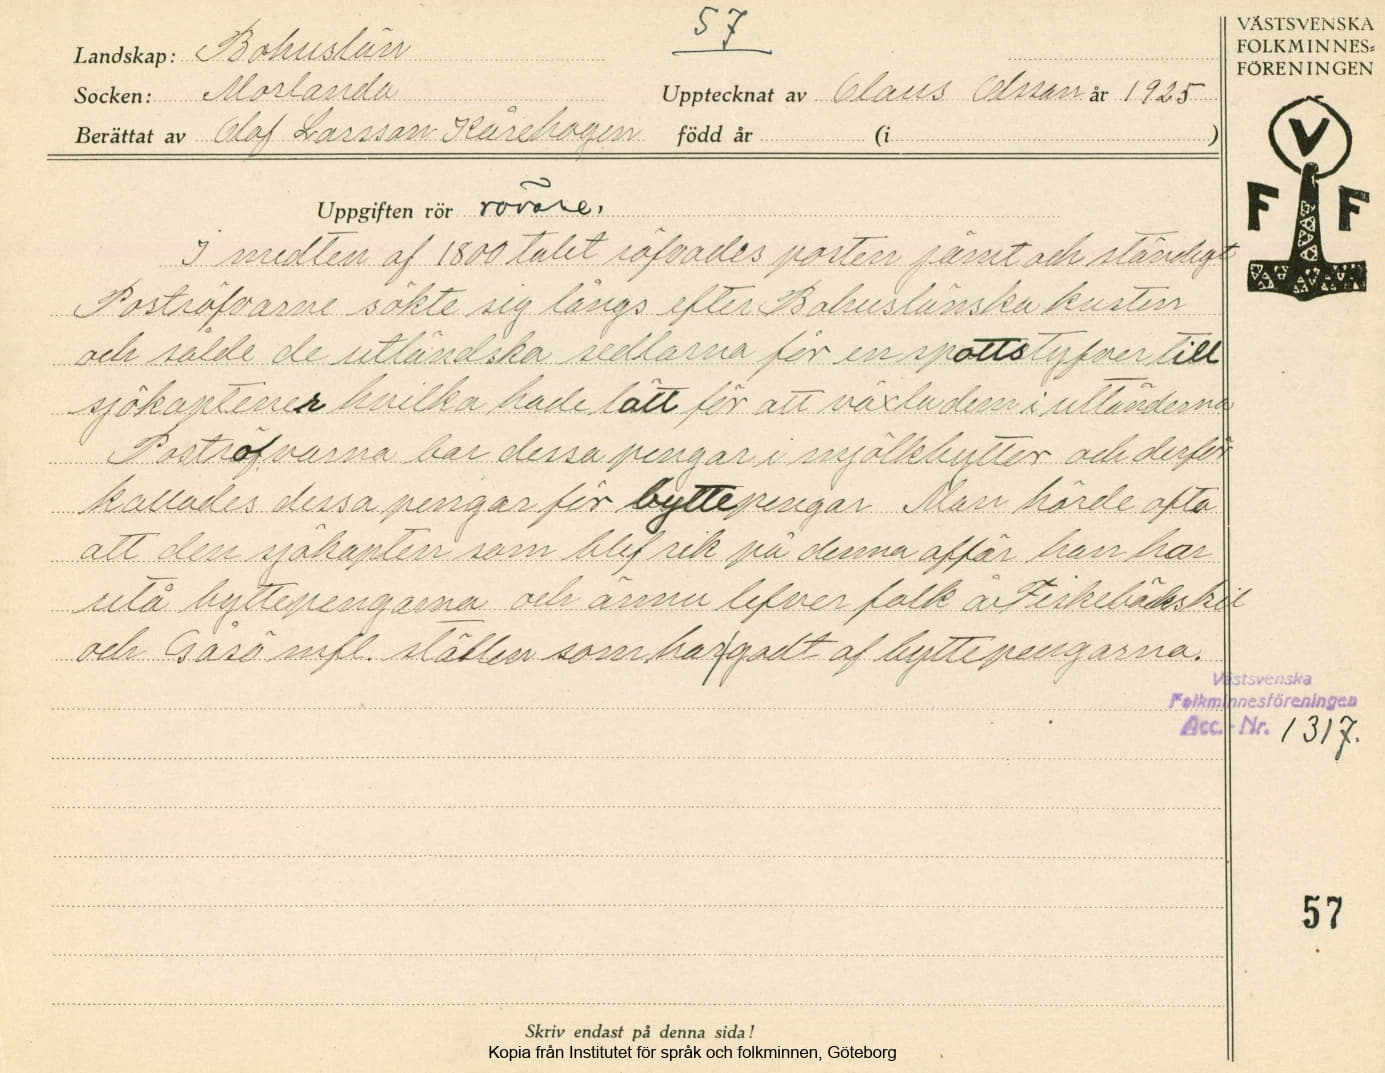 57
VÄSTSVENSKA
FOLKMINNES-
FÖRENINGEN
Landskap: Bohuslän
Socken: Morlanda
Upptecknat av Claus Olsson år 1925
Berättat av Olof Larsson Kårehogen född år (i )
V
F F
Uppgiften rör rövare.
I medten af 1800 talet röfvades posten jämt och ständigt
Poströfvarne sökte sig längs efter Bohuslänska kusten
och sålde de utländska sedlarna för en spottstyfver till
sjökaptener hvilka hade lätt för att växla dem i utländerna
Poströfvarna bar dessa pengar i mjölkbyttor och derför
kallades dessa pengar för byttepengar Man hörde ofta
att den sjökapten som blef rik på denna affär han har
utå byttepengarna och ännu lefver folk å Fiskebäckskil
och Gåsö mfl. ställen som har godt af byttepengarna.
Västsvenska
Folkminnesföreningen
Acc. - Nr. 1317.
57
Skriv endast på denna sida!
Kopia från Institutet för språk och folkminnen, Göteborg